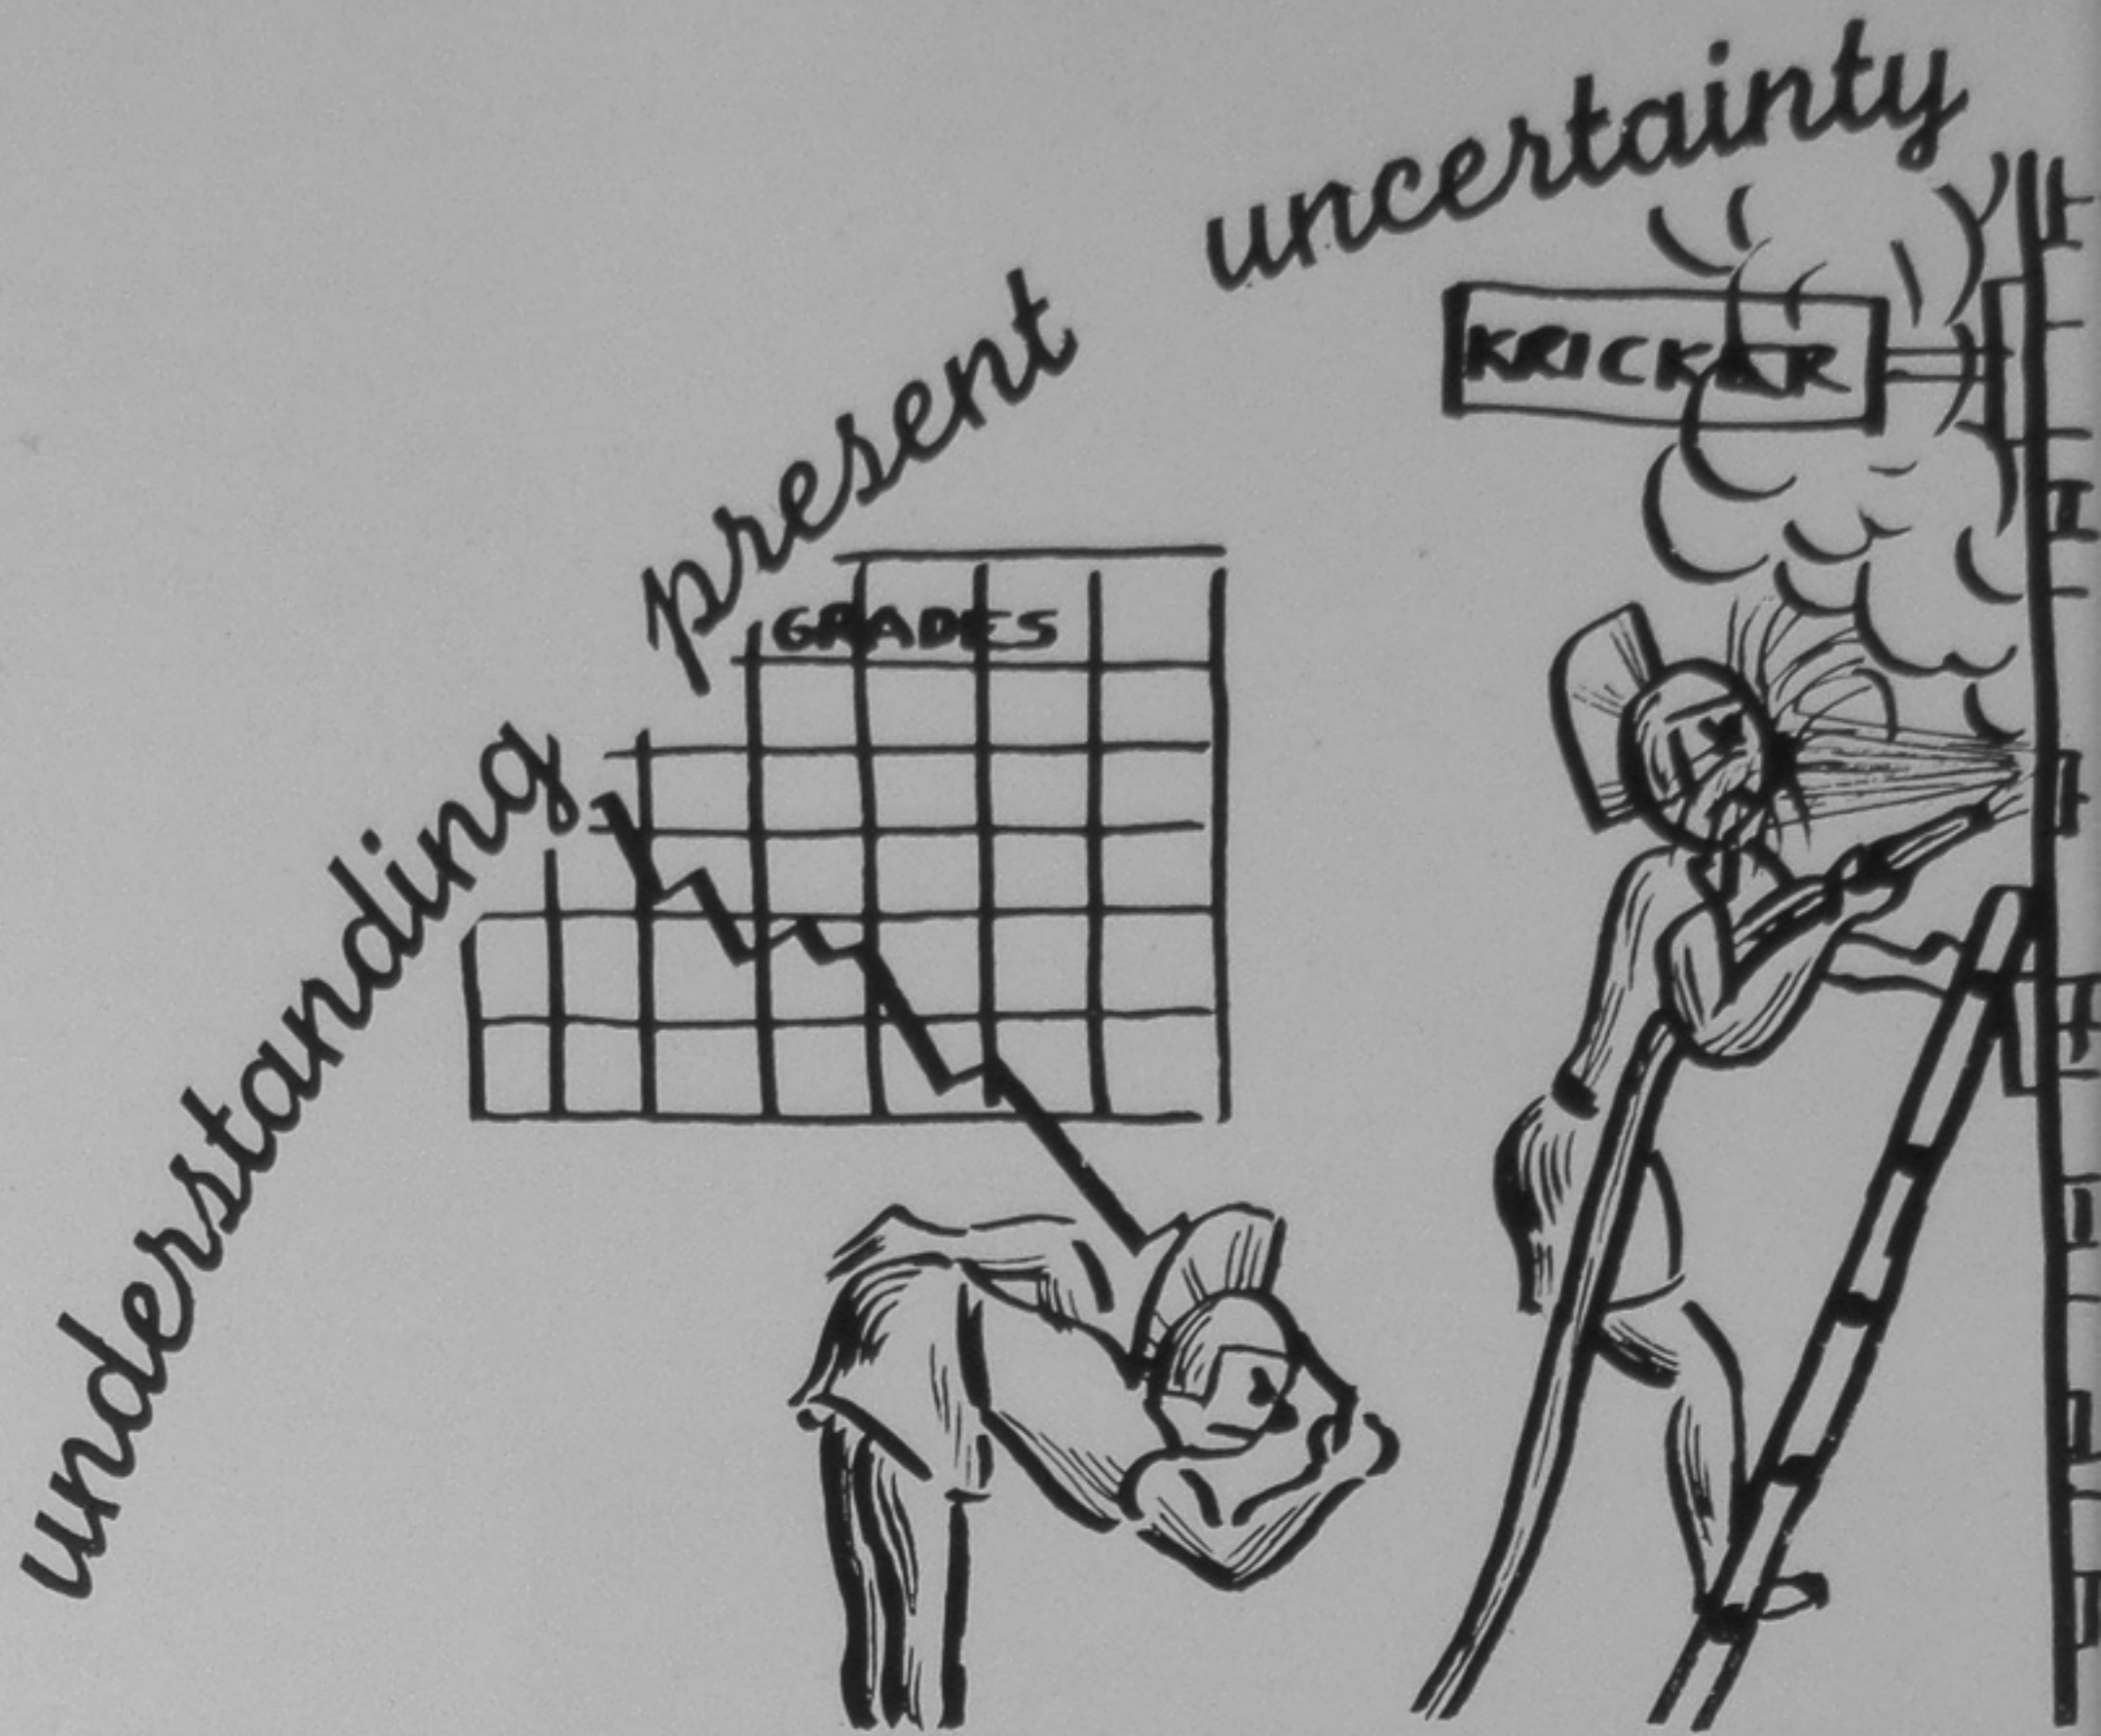 understanding present uncertainty
GRADES
KRICKER